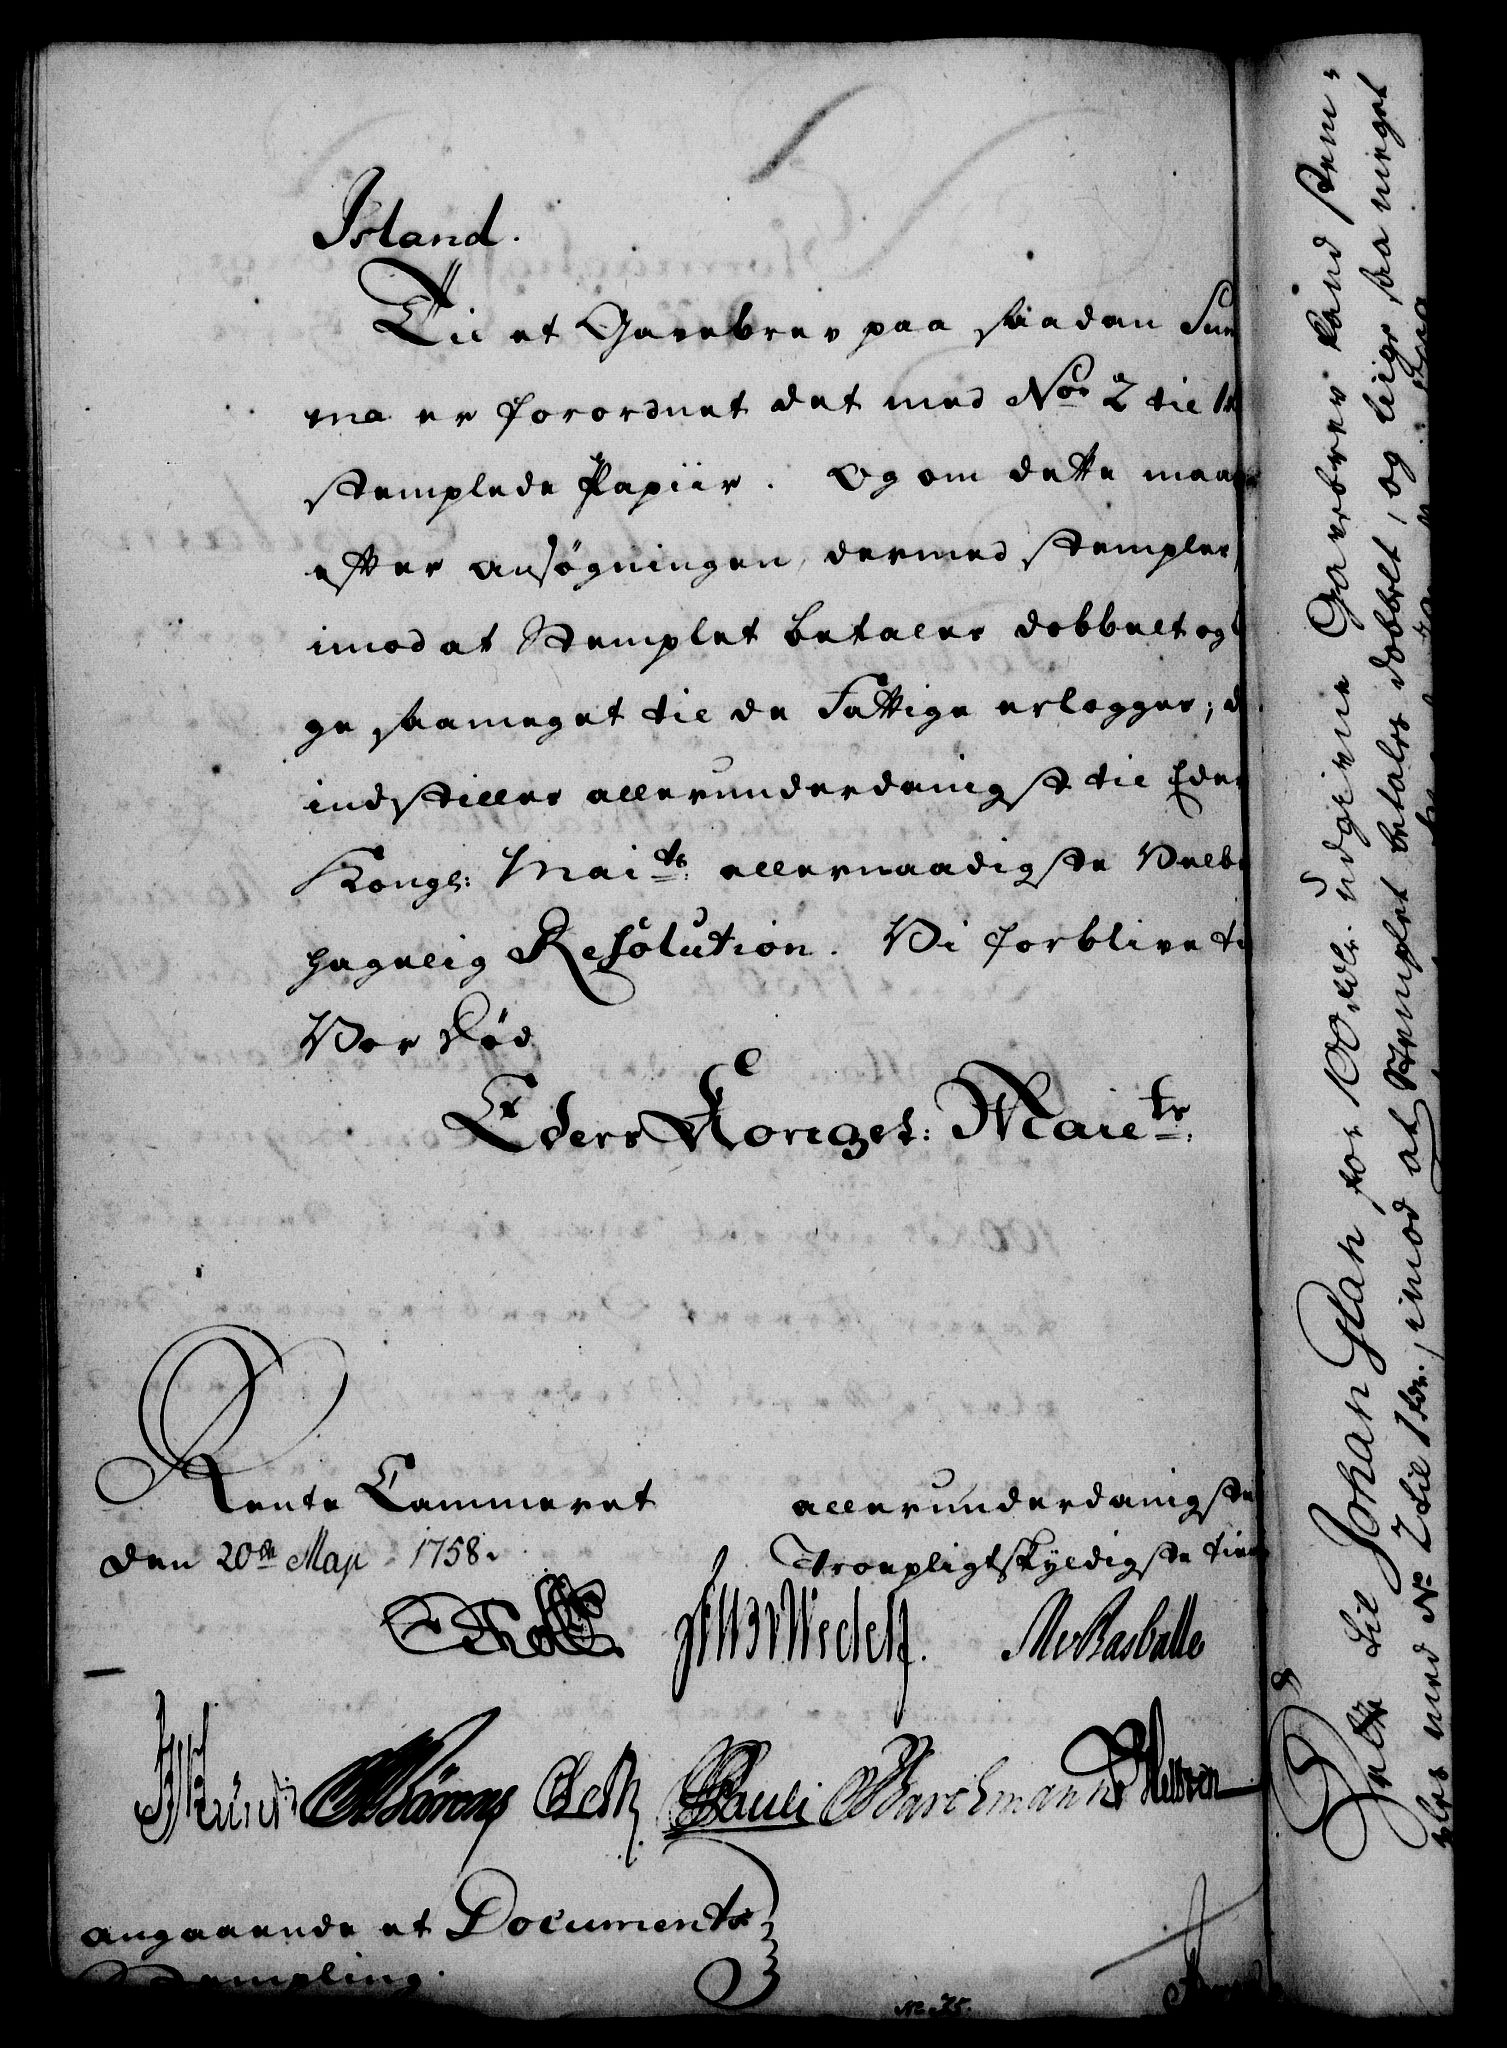 Island.
Til et Gavebrev paa saadan Sum
ma er forordnet det med No 2 til 1
stemplede Papiir. Og om dette maae
efter ansøgningen, dermed stemples,
imod at Stemplet betales dobbelt og
ge saameget til de Fattige erlegges; d
indstilles allerunderdanigst til Eders
Kongl: Maits allernaadigste Velbe
hagelig Resolution. Vi forblive til
Vor Død
Eders Kongel: Maiets
Rente Cammeret
den 20de Maji 1758.
allerunderdanigste
Troepligtskyldigste tien
Wedell.
Pauli Barchmann
angaaende et Documents
Stempling.
No 75.
til Johan Glah for 100 rdlr. udgivne Gavebrev kand stem-
ples med No 2 til 1 rdr., imod at Stemplet betales dobbelt, og lige saa meget